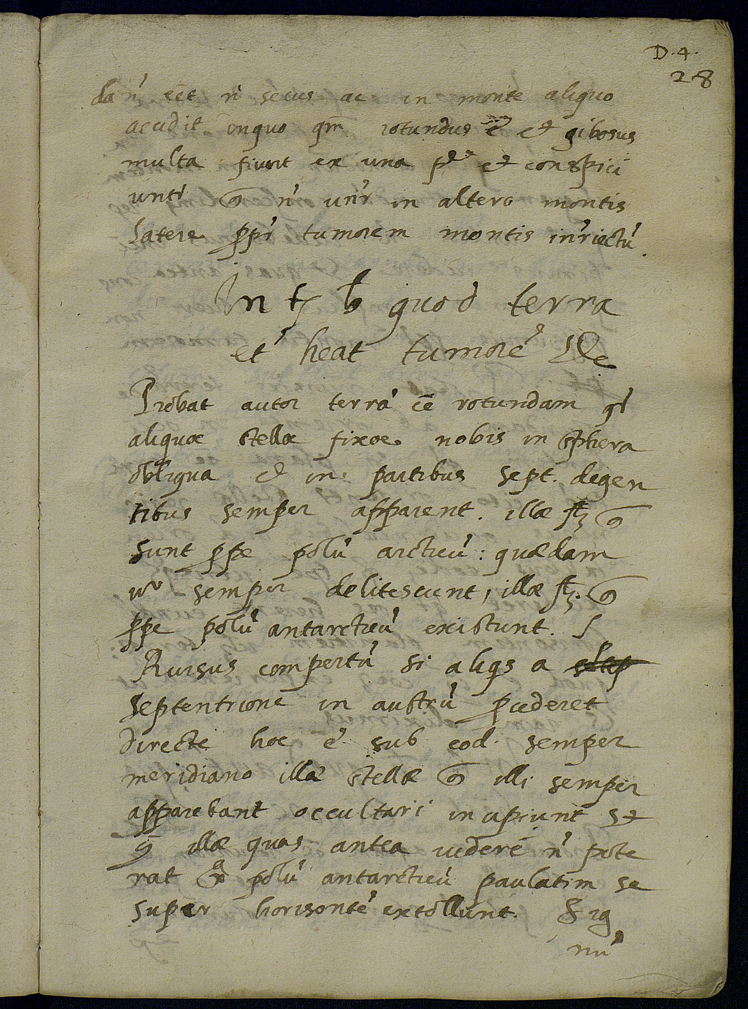 D. 4.
28
da n̄ eēt n̄ secus ac in monte aliquo
accidit inquo qm̄ rotundus ē et gibosus
multa fiunt ex una pte et conspici
unt' n̄ un̄r in altero montis
latere pp̄r tumorem montis intrectū.
In quod terra
et heat tumorē &c
Probat autor terrā eē rotundam
aliquae stellae fixae nobis in sphera
obliqua et in partibus sept. degen
tibus semper apparent. illae
sunt ppe polū arcticū: quaedam
vo semper delitescunt, illae
ppe polū antarcticū existunt.
Rursus compertū si aliqs a
septentrione in austrū pcederet
directe hoc ē sub eod. semper
meridiano illa stellae illi semper
apparebant occultari incipiunt sed
illae quas antea videre n̄ pote
rat polū antarcticū paulatim se
super horisontē extollunt. Sig
nū